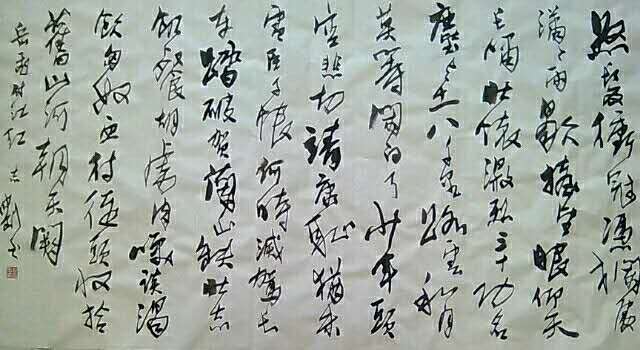 怒髮衝冠憑闌處
瀟瀟雨歇擡望眼仰天
長嘯壯懷激烈三十功名
塵与土八千里路雲和月
莫等閑白了少年頭
空悲切靖康恥猶未
雪臣子恨何時滅駕長
車踏破賀蘭山缺壯志
飢餐胡虜肉笑談渴
飲匈奴血待從頭收拾
舊山河朝天闕
岳飛江紅